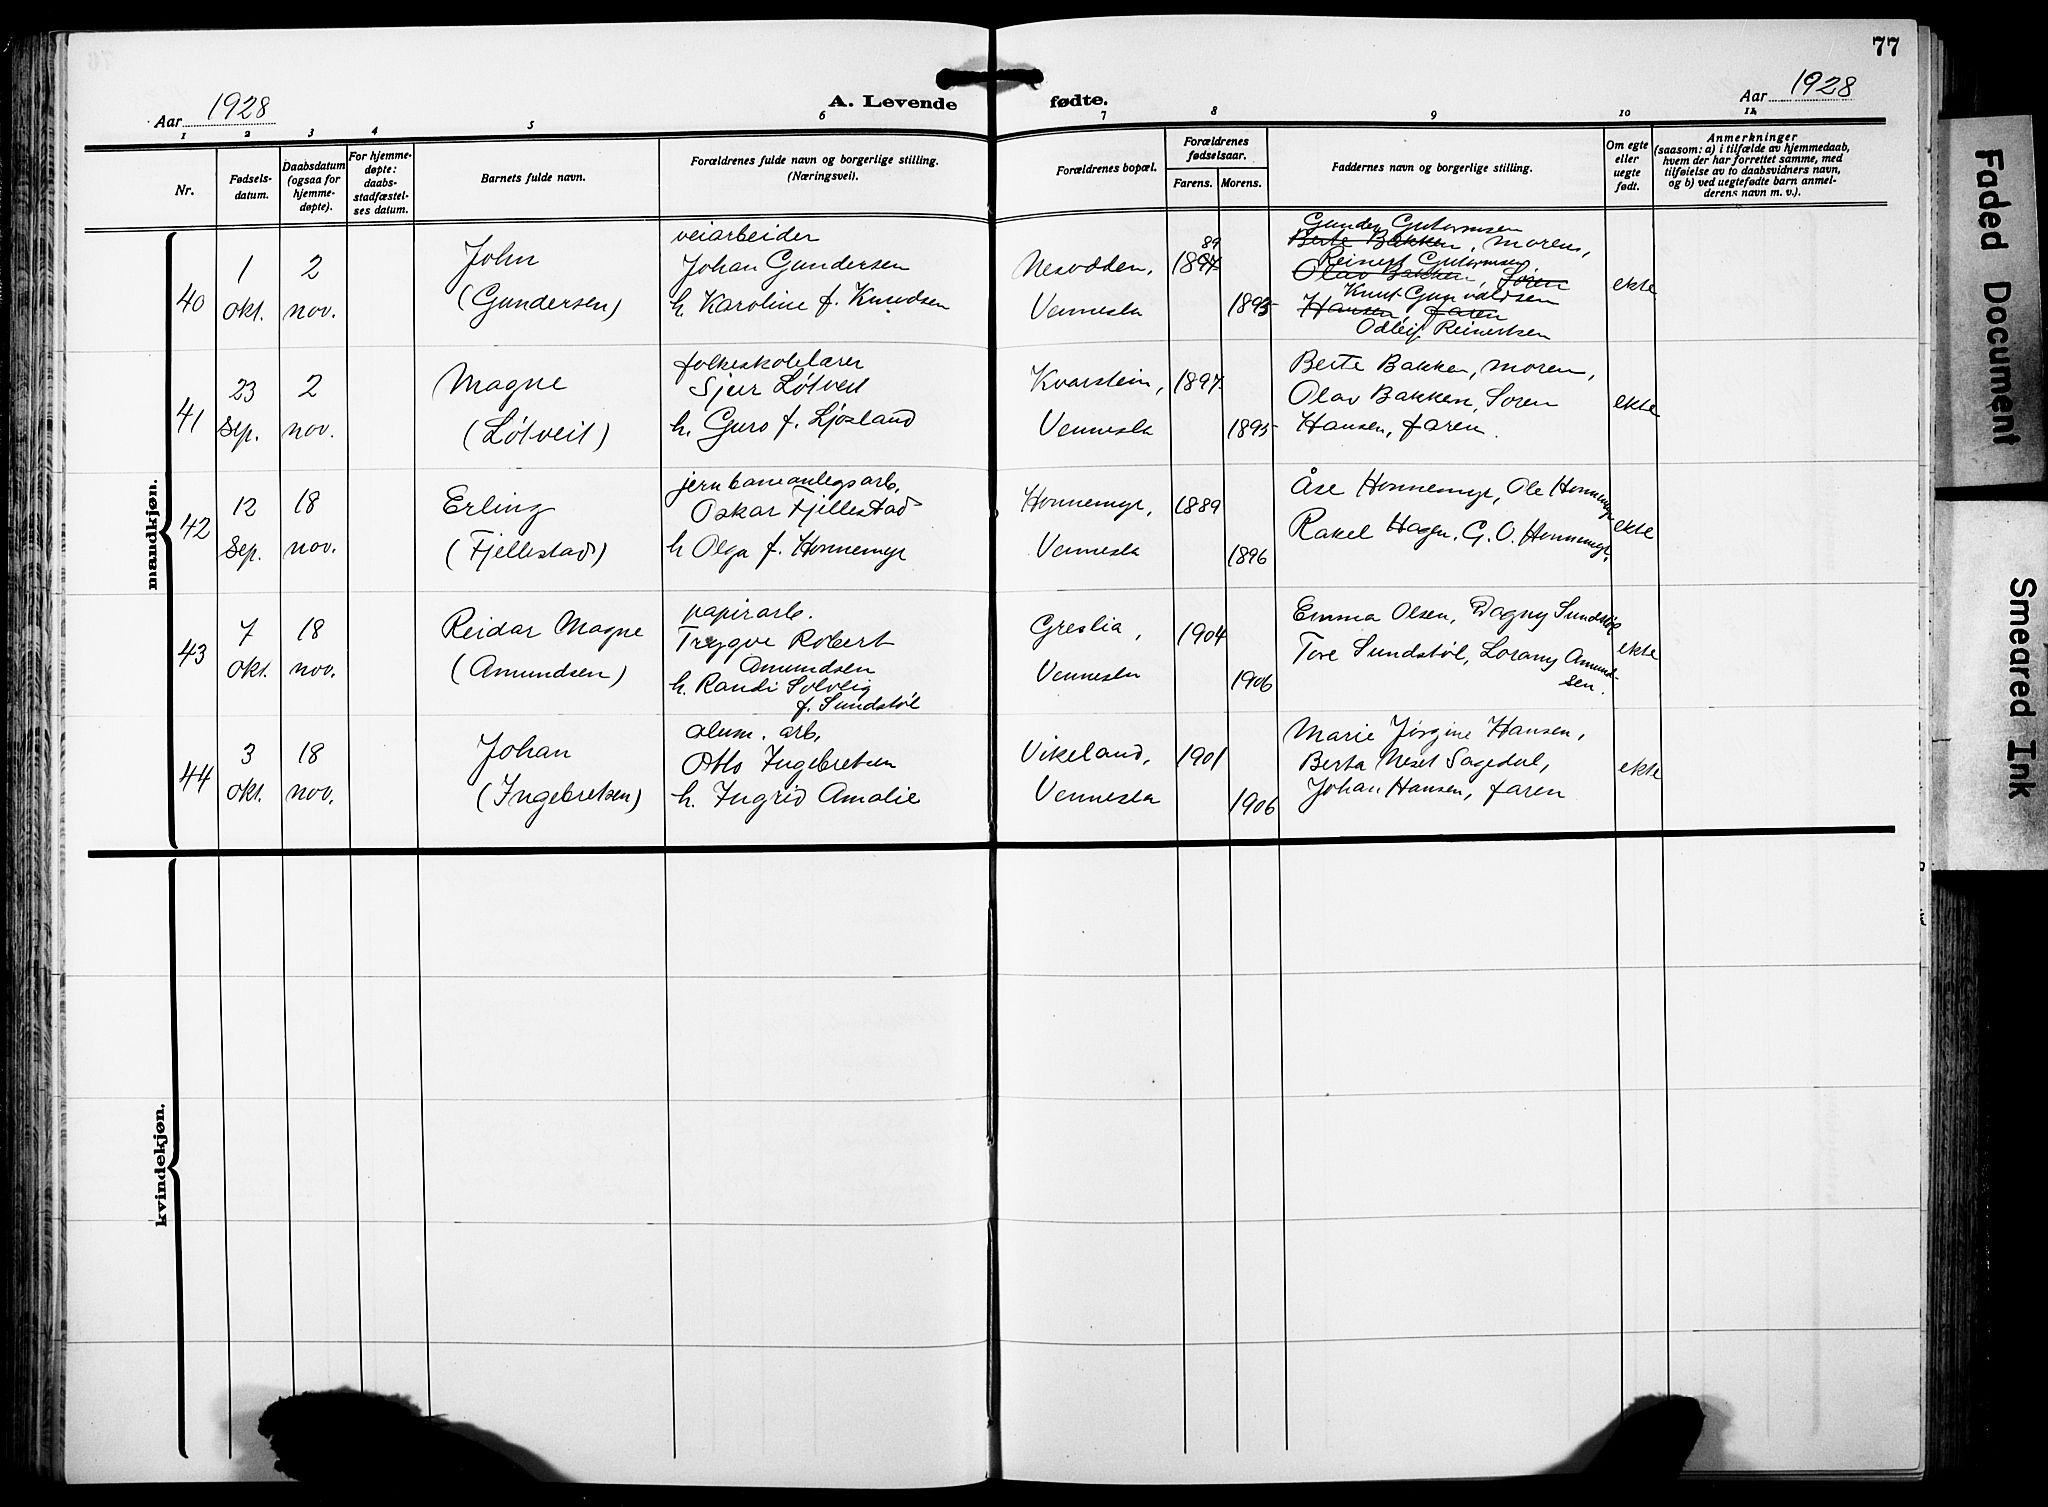 77
Aar 1928
A. Levende fødte.
Aar 1928
1 2 3 4 5 6 7 8 9 10 11
Nr.
Fødsels-
datum.
Daabsdatum
(ogsaa for
hjemme-
døpte).
For hjemme-
døpte:
daabs-
stadfæstel-
ses datum.
Barnets fulde navn.
Forældrenes fulde navn og borgerlige stilling.
(Næringsvei).
Forældrenes bopæl.
Forældrenes
fødselsaar.
Farens. Morens.
Faddernes navn og borgerlige stilling.
Om egte
eller
uegte
født.
Anmerkninger
(saasom: a) i tilfælde av hjemmedaab,
hvem der har forrettet samme, med
tilføielse av to daabsvidners navn,
og b) ved uegtefødte barn anmel-
derens navn m. v.).
mandkjøn.
40
1
okt.
2
nov.
John
(Gundersen)
veiarbeider
Johan Gundersen
h. Karoline f. Knudsen
Nesvodden,
Vennesla
89
1897
1895
Gunder Gutormsen
Berte Bakken, moren,
Reinert Gutormsen
Olav Bakken, Søren
Knut Gunvaldsen
Hansen, faren
Odleif Reinertsen
ekte
41
23
Sep.
2
nov.
Magne
(Løtveit)
folkeskolelærer
Sjur Løtveit
h. Guro f. Ljosland
Kvarstein,
Vennesla
1897.
1895
Berte Bakken, moren,
Olav Bakken, Soren
Hansen, faren.
ekte
42
12
Sep.
18
nov.
Erling
(Fjellestad)
jernbaneanlegsarb.
Oskar Fjellestad
h Olga f. Honnemyr
Honnemyr,
Vennesla
1889
1896
Åse Honnemyr, Ole Honnemyr
Rakel Hagen, G. O. Honnemyr.
ekte
43
7
okt.
18
nov.
Reidar Magne
(Amundsen)
papirarb.
Trygve Robert
Amundsen
h. Randi Solveig
f. Sundstøl
Greslia,
Vennesla
1904
1906
Emma Olsen, Dagny Sundstøl
Tore Sundstøl, Lorany Amund-
sen.
ekte
44
3
okt.
18
nov.
Johan
(Ingebretsen)
alum. arb.
Otto Ingebretsen
h. Ingrid Amalie
Vikeland,
Vennesla
1901
1906
Marie Jørgine Hansen,
Berta Neset Sagedal,
Johan Hansen, faren
ekte
kvindekjøn.
Faded Document
Smeared Ink